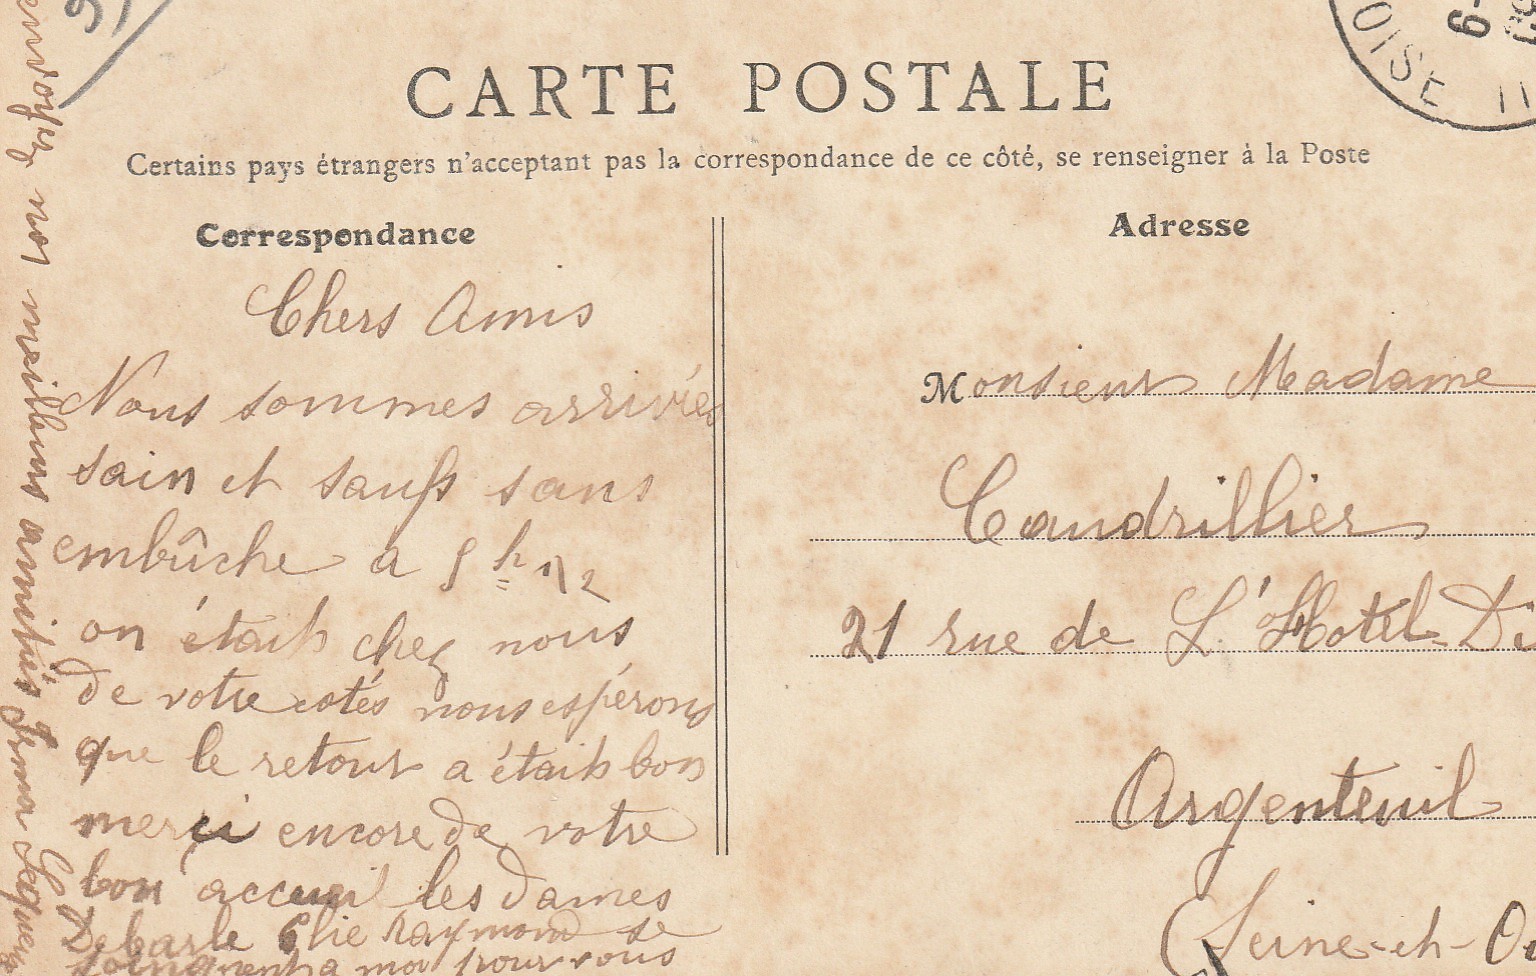 CARTE POSTALE
Certains pays étrangers n'acceptant pas la correspondance de ce côté, se renseigner à la Poste
Correspondance
Chers Amis
Nous sommes arrivés
sain et saufs sans
embûche a 5 h 1/2
on étaits chez nous
de votre cotés nous espérons
que le retour a étaits bon
merci encore de votre
bon accueil les dames
Debarle Elie Raymond se
a moi pour vous
envoyer nos meilleurs amitiés Irma
Adresse
Monsieur Madame
Caudrillier
21 rue de L'Hotel-Di
Argenteuil
(Seine-et-Oi
OISE
6